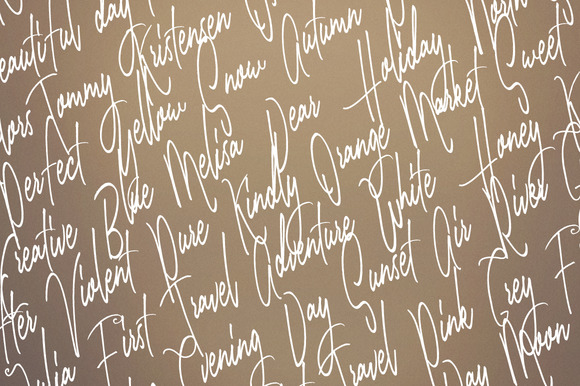 eautiful day
lors Tommy Kristensen
Perfect Yellow Snow Autumn
Creative Blue Melisa Dear Holiday
Her Violent Pure Kindly Orange Market Sweet
First Travel Adventure White Honey
Evening Day Sunset Air River
Travel Pink Grey F
Day Moon